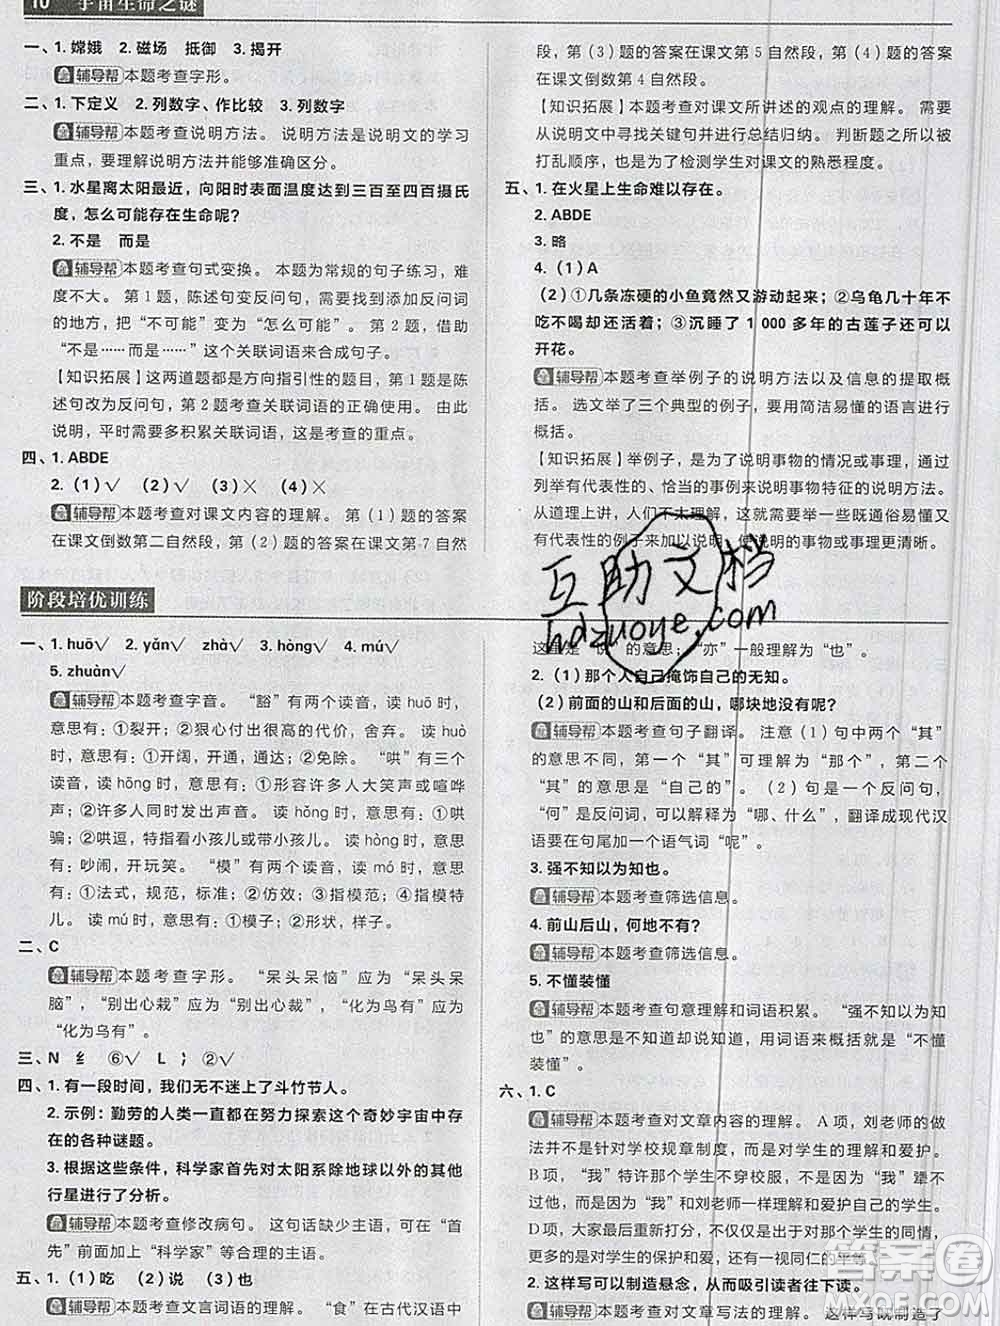 10 宇宙生命之谜
一、1. 嫦娥 2. 磁场 抵御 3. 揭开
辅导帮 本题考查字形。
二、1. 下定义 2. 列数字、作比较 3. 列数字
辅导帮 本题考查说明方法。说明方法是说明文的学习
重点，要理解说明方法并能够准确区分。
三、1. 水星离太阳最近，向阳时表面温度达到三百至四百摄氏
度，怎么可能存在生命呢？
2. 不是 而是
辅导帮 本题考查句式变换。本题为常规的句子练习，难
度不大。第 1 题，陈述句变反问句，找到可以改成反问词
的地方，把“不可能”变为“怎么可能”。第 2 题，借助
“不是……而是……”这个关联词语来合成句子。
【知识拓展】这两道题都是方向指引性的题目，第 1 题是陈
述句改为反问句，第 2 题考查关联词语的正确使用。由此
说明，平时需要多积累关联词语，这是考查的重点。
四、1. ABDE
2.（1）√ （2）√ （3）× （4）×
辅导帮 本题考查对课文内容的理解。第（1）题的答案
在课文倒数第二自然段，第（2）题的答案在课文第 7 自然
段，第（3）题的答案在课文第 5 自然段，第（4）题的答案
在课文倒数第 4 自然段。
【知识拓展】本题考查对课文所讲述的观点的理解。需要
从说明文中寻找关键句并进行总结归纳。判断题之所以被
打乱顺序，也是为了检测学生对课文的熟悉程度。
五、1. 在火星上生命难以存在。
2. ABDE
3. 略
4.（1）A
（2）①几条冻硬的小鱼竟然又游动起来；②乌龟几十年不
吃不喝却还活着；③沉睡了 1 000 多年的古莲子还可以
开花。
辅导帮 本题考查举例子的说明方法以及信息的提取概
括。选文举了三个典型的例子，要用简洁易懂的语言进行
概括。
【知识拓展】举例子，是为了说明事物的情况或事理，通过
列举有代表性的、恰当的事例来说明事物特征的说明方法。
从道理上讲，人们不太理解，这就需要举一些既通俗易懂又
有代表性的例子来加以说明，使说明的事物或事理更清晰。
互助文档
hdzuoye.com
阶段培优训练
一、1. huō√ 2. yǎn√ zhà√ 3. hòng√ 4. mú√
5. zhuàn√
辅导帮 本题考查字音。“豁”有两个读音，读 huō
时，意思有：①裂开；②狠心付出很高的代价，舍弃。读 huò
时，意思有：①开阔，开通，通达；②免除。“哄”有三个
读音，读 hōng 时，意思有：①形容许多人大笑声或喧哗
声；②许多人同时发出声音。读 hǒng 时，意思有：①哄
骗；②哄逗，特指看小孩儿或带小孩儿。读 hòng 时，意思
有：吵闹，开玩笑。“模”有两个读音，读 mó 时，意思有：
①法式，规范，标准；②仿效；③指模范；④指模特
儿。读 mú 时，意思有：①模子；②形状，样子。
二、C
辅导帮 本题考查字形。“呆头呆恼”应为“呆头呆
脑”，“别出心栽”应为“别出心裁”，“化为鸟有”应为
“化为乌有”。
三、N 纟 ⑥√ L 冫 ②√
四、1. 有一段时间，我们无不迷上了斗竹节人。
2. 示例：勤劳的人类一直都在努力探索这个奇妙宇宙中存
在的各种谜题。
3. 根据这些条件，科学家首先对太阳系除地球以外的其他
行星进行了分析。
辅导帮 本题考查修改病句。这句话缺少主语，可在“首
先”前面加上“科学家”等合理的主语。
五、1.（1）吃 （2）说 （3）也
辅导帮 本题考查文言词语的理解。“食”在古代汉语中
这里是“说”的意思；“亦”一般理解为“也”。
2.（1）那个人自己掩饰自己的无知。
（2）前面的山和后面的山，哪块地没有呢？
辅导帮 本题考查句子翻译。注意（1）句中两个“其”
的意思不同，第一个“其”可理解为“那个”，第二个
“其”的意思是“自己的”。（2）句是一个反问句，
“何”是反问词，可以解释为“哪、什么”，翻译成现代汉
语要在句尾加一个语气词“呢”。
3. 强不知以为知也。
辅导帮 本题考查筛选信息。
4. 前山后山，何地不有？
辅导帮 本题考查筛选信息。
5. 不懂装懂
辅导帮 本题考查句意理解和词语积累。“强不知以为知
也”的意思是不知道却说知道，用词语来概括就是“不懂
装懂”。
六、1. C
辅导帮 本题考查对文章内容的理解。A 项，刘老师的做
法并不是针对学校规章制度，而是出于对学生的理解和爱护。
B 项，“我”特许那个学生不穿校服，不是因为“我”犟不
过他，而是因为“我”和刘老师一样理解和爱护自己的学生。
D 项，大家最后重新打分，不仅仅是出于对学生的同情，
更多的是对学生的保护和爱，还有一视同仁的平等。
2. 这样写可以制造悬念，从而吸引读者往下读。
辅导帮 本题考查对文章写法的理解。这样写既制造了
答案圈
MXQE.COM